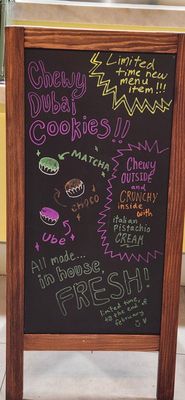 Limited
time new
menu
item!!!
Chewy
Dubai
Cookies!!
MATCHA
CHOCO
Ube
Chewy
OUTSIDE
and
CRUNCHY
inside
with
italian
pistachio
CREAM
All made...
in house,
FRESH!
limited time,
to the end
february